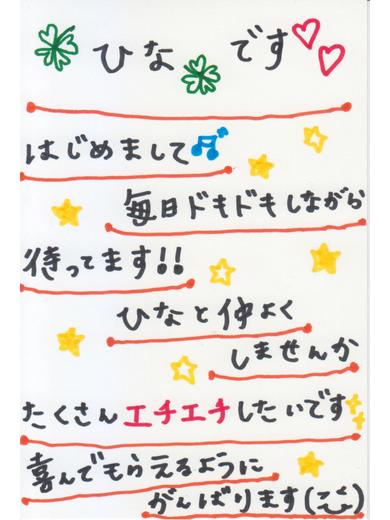 ひなです
はじめまして♬
毎日ドキドキしながら
待ってます!!
ひなと仲よく
しませんか
たくさんエチエチしたいです
喜んでもらえるように
がんばります